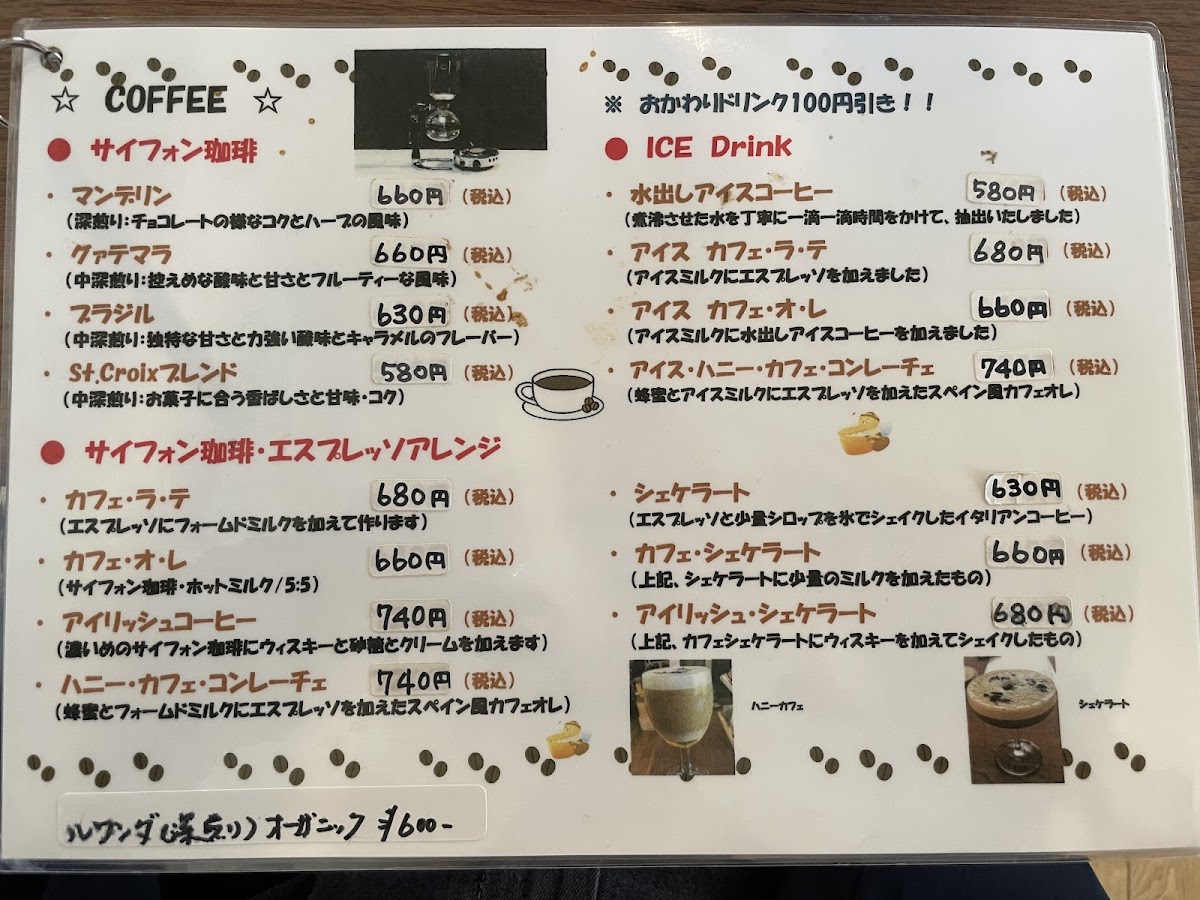 ☆ COFFEE ☆
● サイフォン珈琲
・ マンデリン 660円 (税込)
(深煎り:チョコレートの様なコクとハーブの風味)
・ グァテマラ 660円 (税込)
(中深煎り:控えめな酸味と甘さとフルーティーな風味)
・ ブラジル 630円 (税込)
(中深煎り:独特な甘さと力強い酸味とキャラメルのフレーバー)
・ St.Croixブレンド 580円 (税込)
(中深煎り:お菓子に合う香ばしさと甘味・コク)
● サイフォン珈琲・エスプレッソアレンジ
・ カフェ・ラ・テ 680円 (税込)
(エスプレッソにフォームドミルクを加えて作ります)
・ カフェ・オ・レ 660円 (税込)
(サイフォン珈琲・ホットミルク/5:5)
・ アイリッシュコーヒー 740円 (税込)
(濃いめのサイフォン珈琲にウィスキーと砂糖とクリームを加えます)
・ ハニー・カフェ・コンレーチェ 740円 (税込)
(蜂蜜とフォームドミルクにエスプレッソを加えたスペイン風カフェオレ)
ルワンダ(深煎り) オーガニック ¥600-
※ おかわりドリンク100円引き!!
● ICE Drink
・ 水出しアイスコーヒー 580円 (税込)
(煮沸させた水を丁寧に一滴一滴時間をかけて、抽出いたしました)
・ アイス カフェ・ラ・テ 680円 (税込)
(アイスミルクにエスプレッソを加えました)
・ アイス カフェ・オ・レ 660円 (税込)
(アイスミルクに水出しアイスコーヒーを加えました)
・ アイス・ハニー・カフェ・コンレーチェ 740円 (税込)
(蜂蜜とアイスミルクにエスプレッソを加えたスペイン風カフェオレ)
・ シェケラート 630円 (税込)
(エスプレッソと少量シロップを氷でシェイクしたイタリアンコーヒー)
・ カフェ・シェケラート 660円 (税込)
(上記、シェケラートに少量のミルクを加えたもの)
・ アイリッシュ・シェケラート 680円 (税込)
(上記、カフェシェケラートにウィスキーを加えてシェイクしたもの)
ハニーカフェ
シェケラート